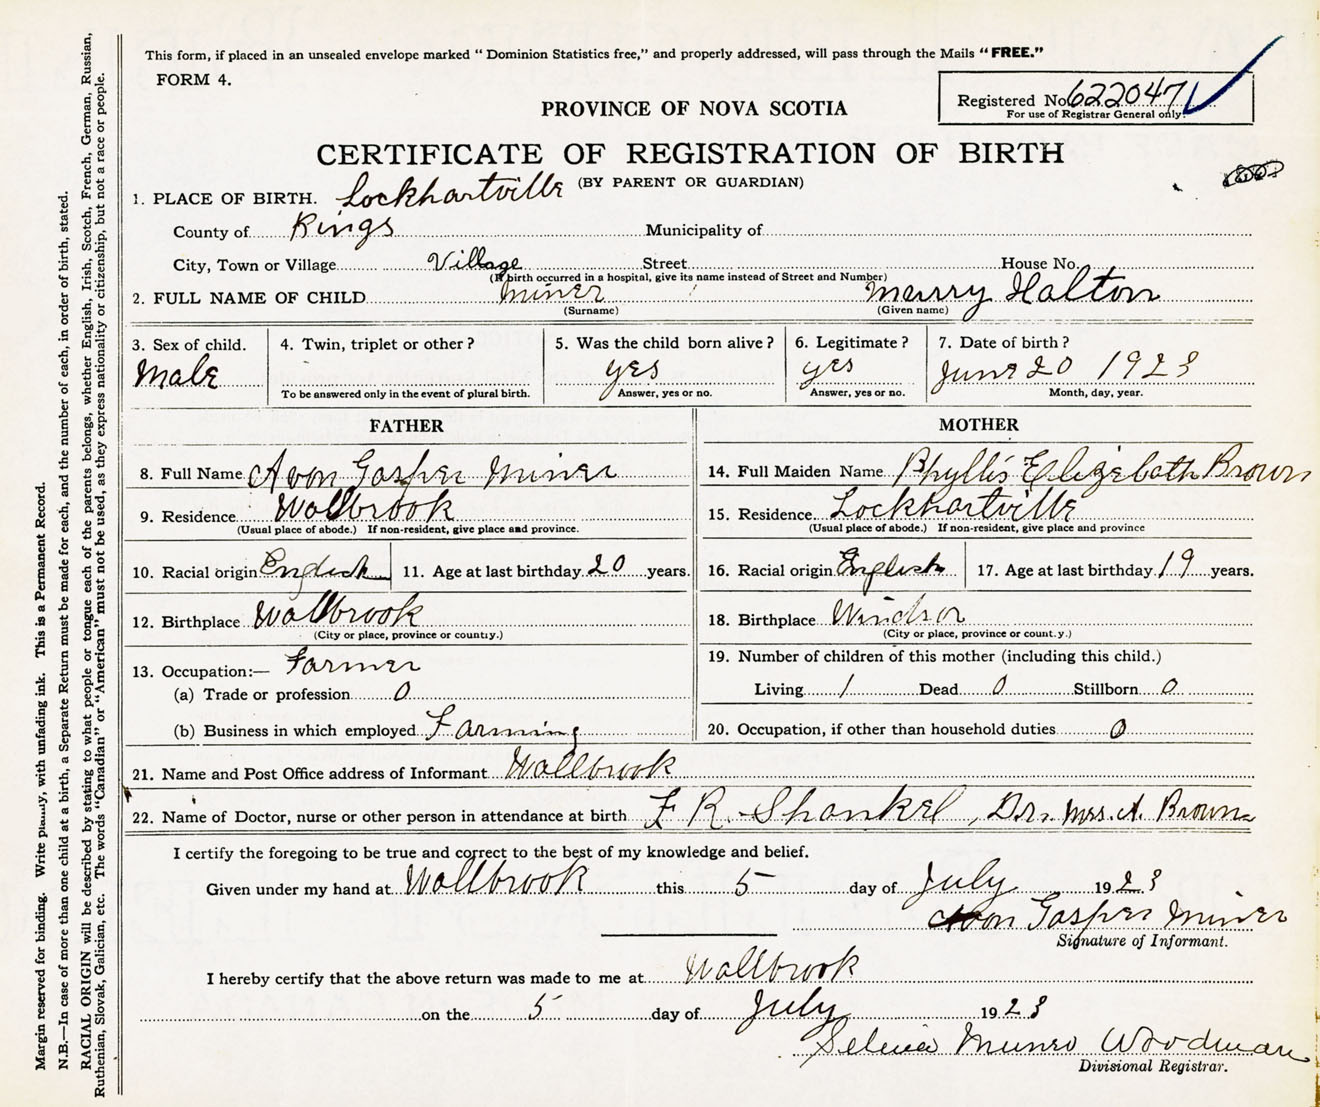 This form, if placed in an unsealed envelope marked "Dominion Statistics free," and properly addressed, will pass through the Mails "FREE."
FORM 4.
Registered No. 622047
For use of Registrar General only.
PROVINCE OF NOVA SCOTIA
CERTIFICATE OF REGISTRATION OF BIRTH
(BY PARENT OR GUARDIAN)
1. PLACE OF BIRTH. Lockhartville
County of Kings Municipality of
City, Town or Village Village Street House No.
(If birth occurred in a hospital, give its name instead of Street and Number)
2. FULL NAME OF CHILD Miner Murry Halton
(Surname) (Given name)
3. Sex of child. 4. Twin, triplet or other? 5. Was the child born alive? 6. Legitimate? 7. Date of birth?
Male yes yes June 20 1923
To be answered only in the event of plural birth. Answer, yes or no. Answer, yes or no. Month, day, year.
FATHER MOTHER
8. Full Name Avon Gasper Miner 14. Full Maiden Name Phyllis Elizabeth Brown
9. Residence Wallbrook 15. Residence Lockhartville
(Usual place of abode.) If non-resident, give place and province. (Usual place of abode.) If non-resident, give place and province
10. Racial origin English 11. Age at last birthday 20 years. 16. Racial origin English 17. Age at last birthday 19 years.
12. Birthplace Wallbrook 18. Birthplace Windsor
(City or place, province or county.) (City or place, province or county.)
13. Occupation:— Farmer 19. Number of children of this mother (including this child.)
(a) Trade or profession 0 Living 1 Dead 0 Stillborn 0
(b) Business in which employed Farming 20. Occupation, if other than household duties 0
21. Name and Post Office address of Informant Wallbrook
22. Name of Doctor, nurse or other person in attendance at birth F R. Shankel, Dr. Mrs. A. Brown
I certify the foregoing to be true and correct to the best of my knowledge and belief.
Given under my hand at Wallbrook this 5 day of July 1923
Avon Gasper Miner
Signature of Informant.
I hereby certify that the above return was made to me at Wallbrook
on the 5 day of July 1923
Selina Munro Woodman
Divisional Registrar.
Margin reserved for binding. Write plainly, with unfading ink. This is a Permanent Record.
N.B.—In case of more than one child at a birth, a Separate Return must be made for each, and the number of each, in order of birth, stated.
RACIAL ORIGIN will be described by stating to what people or tongue each of the parents belongs, whether English, Irish, Scotch, French, German, Russian,
Ruthenian, Slovak, Galician, etc. The words "Canadian" or "American" must not be used, as they express nationality or citizenship, but not a race or people.